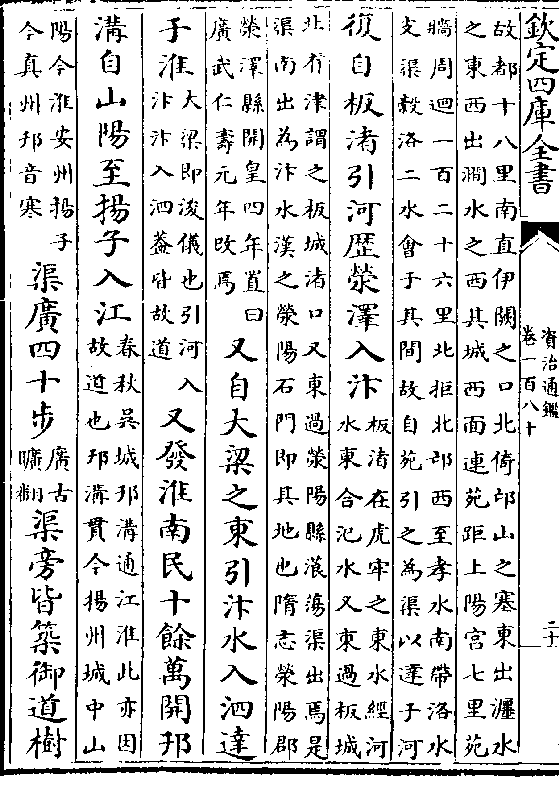 欽定四庫全書
資治通鑑
卷一百八十
二十
故都十八里南直伊闕之口北倚邙山之塞東出瀍水
之東西出澗水之西其城西面連苑距上陽宮七里苑
牆周迴一百二十六里北拒北邙西至孝水南帶洛水
支渠榖洛二水會于其間故自苑引之為渠以達于河
復自板渚引河歴滎澤入汴
板渚在虎牢之東水經河
水東合氾水又東過板城
北有津謂之板城渚口又東過滎陽縣蒗蕩渠出焉是
渠南出為汴水漢之滎陽石門即其地也隋志滎陽郡
滎澤縣開皇四年置曰
廣武仁壽元年改焉
又自大梁之東引汴水入泗達
于淮
大梁即浚儀也引河入
汴汴入泗葢皆故道
又發淮南民十餘萬開邗
溝自山陽至揚子入江
春秋吳城邗溝通江淮此亦因
故道也邗溝貫今揚州城中山
陽今淮安州揚子
今真州邗音寒
渠廣四十步
廣古
曠翻
渠旁皆築御道樹